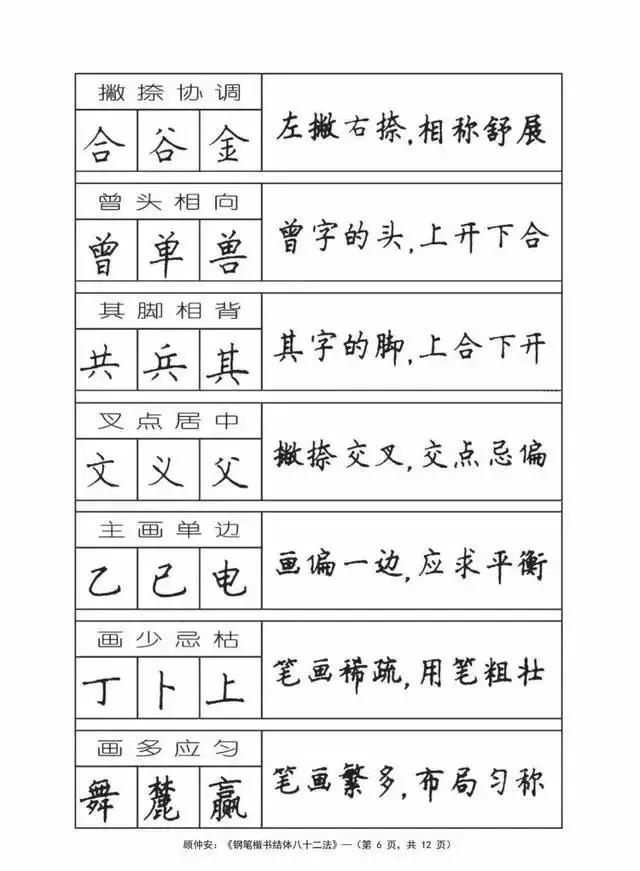 撇捺协调
合 谷 金
左撇右捺,相称舒展
曾头相向
曾 单 兽
曾字的头,上开下合
其脚相背
共 兵 其
其字的脚,上合下开
叉点居中
文 义 父
撇捺交叉,交点忌偏
主画单边
乙 已 电
画偏一边,应求平衡
画少忌枯
丁 卜 上
笔画稀疏,用笔粗壮
画多应匀
舞 麓 赢
笔画繁多,布局匀称
顾仲安：《钢笔楷书结体八十二法》—（第 6 页，共 12 页）